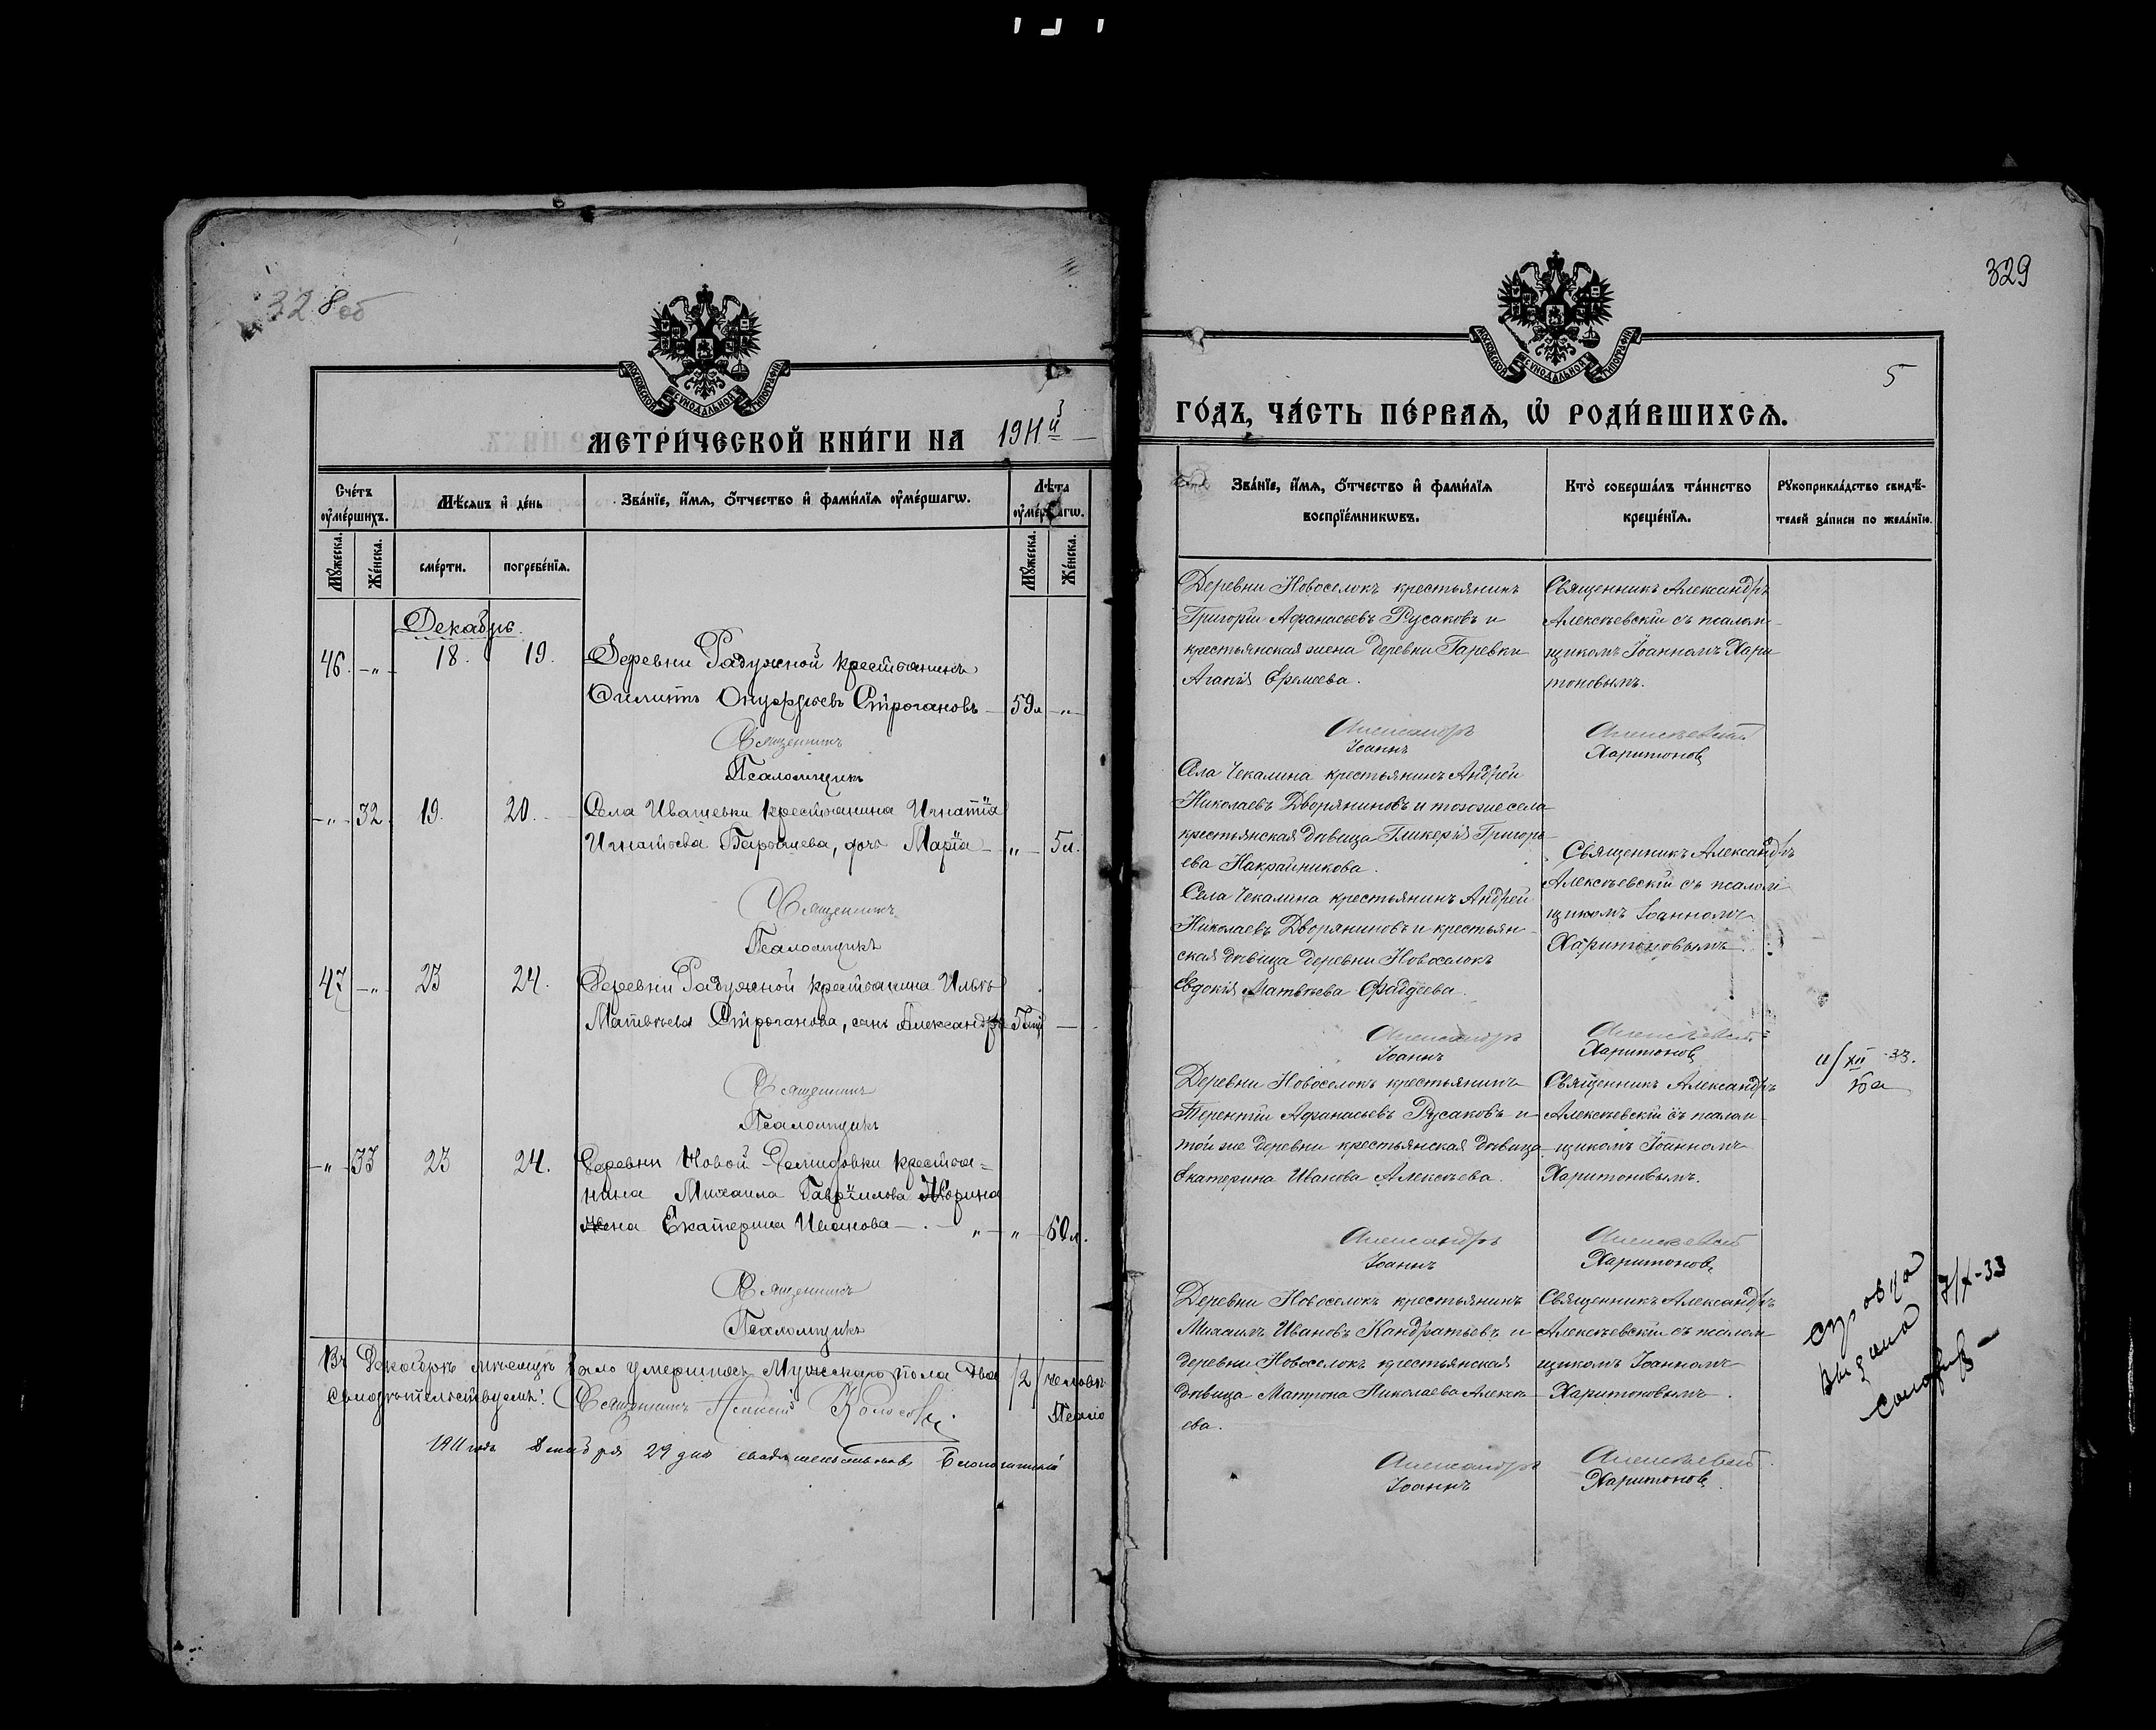 328 об
МОСКОВСКОЙ СѴНОДАЛЬНОЙ ТИПОГРАФІИ
МЕТРИ́ЧЕСКОЙ КНИ́ГИ НА 1911й
Сче́тъ ᲂу҆ме́ршихъ.
Мѣ́сяцъ и҆ де́нь
Зва́нїе, и҆́мѧ, ѻ҆́тчество и҆ фами́лїѧ ᲂу҆ме́ршагѡ.
Лѣ́та ᲂу҆ме́ршагѡ.
Мꙋ́жеска.
Же́нска.
сме́рти.
погребе́нїѧ.
Мꙋ́жеска.
Же́нска.
Декабрь.
46. -"- 18. 19. Деревни Радужной крестьянинъ
Филиппъ Онуфріевъ Строгановъ 59л -"-
Священникъ
Псаломщикъ
-"- 32. 19. 20. Села Ивашевки крестьянина Игнатія
Игнатьева дочь Марія -"- 5л.
Священникъ
Псаломщикъ
47 -"- 23 24. Деревни Радужной крестьянина
Матвѣева Строганова, сынъ Александръ
Священникъ
Псаломщикъ
-"- 33 23 24. Деревни Новой крестья=
нина Михаила Гавріилова
жена Екатерина Иванова -"- 60л.
Священникъ
Псаломщикъ
Въ Декабрѣ мѣсяцѣ было умершихъ Мужскаго пола два /2/ человѣк
Свидѣтельствуемъ: Священникъ Алексій
Псало
1911 года декабря 29 дня
329
5
МОСКОВСКОЙ СѴНОДАЛЬНОЙ ТИПОГРАФІИ
ГО́ДЪ, ЧА́СТЬ ПЕ́РВАѦ, Ѡ҆ РОДИ́ВШИХСѦ.
Зва́нїе, и҆́мѧ, ѻ҆́тчество и҆ фами́лїѧ
воспрїе́мникѡвъ.
Кто̀ соверша́лъ та́инство
креще́нїѧ.
Рꙋкоприкла́дство свидѣ́-
телей за́писи по жела́нїю.
Деревни Новоселокъ крестьянинъ
Григорій Афанасьевъ Русаковъ и
крестьянская жена деревни Гаревки
Агапія Еремеева.
Священникъ Александръ
Алексѣевскій съ псалом-
щикомъ Іоанномъ Хари
тоновымъ.
Александръ Алексѣевскій
Іоаннъ Харитоновъ
Села Чекалина крестьянинъ Андрей
Николаевъ Дворяниновъ и тогоже села
крестьянская дѣвица Гликерія Григорь-
ева Накрайникова.
Села Чекалина крестьянинъ Андрей
Николаевъ Дворяниновъ и крестьян-
ская дѣвица деревни Новоселокъ
Евдокія Матвѣева Фаддеева.
Священникъ Александръ
Алексѣевскій съ псалом
щикомъ Іоанномъ
Харитоновымъ.
Александръ Алексѣевскій
Іоаннъ Харитоновъ
Деревни Новоселокъ крестьянинъ
Терентій Афанасьевъ Русаковъ и
той же деревни крестьянская дѣвица
Екатерина Иванова Алексѣева.
Священникъ Александръ
Алексѣевскій съ псалом-
щикомъ Іоанномъ
Харитоновымъ.
Александръ Алексѣевскій
Іоаннъ Харитоновъ
Деревни Новоселокъ крестьянинъ
Михаилъ Ивановъ Кандратьевъ и
деревни Новоселокъ крестьянская
дѣвица Матрона Николаева Алексѣ-
ева.
Священникъ Александръ
Алексѣевскій съ псалом-
щикомъ Іоанномъ
Харитоновымъ.
Александръ Алексѣевскій
Іоаннъ Харитоновъ
справка
выдана 7/X-33